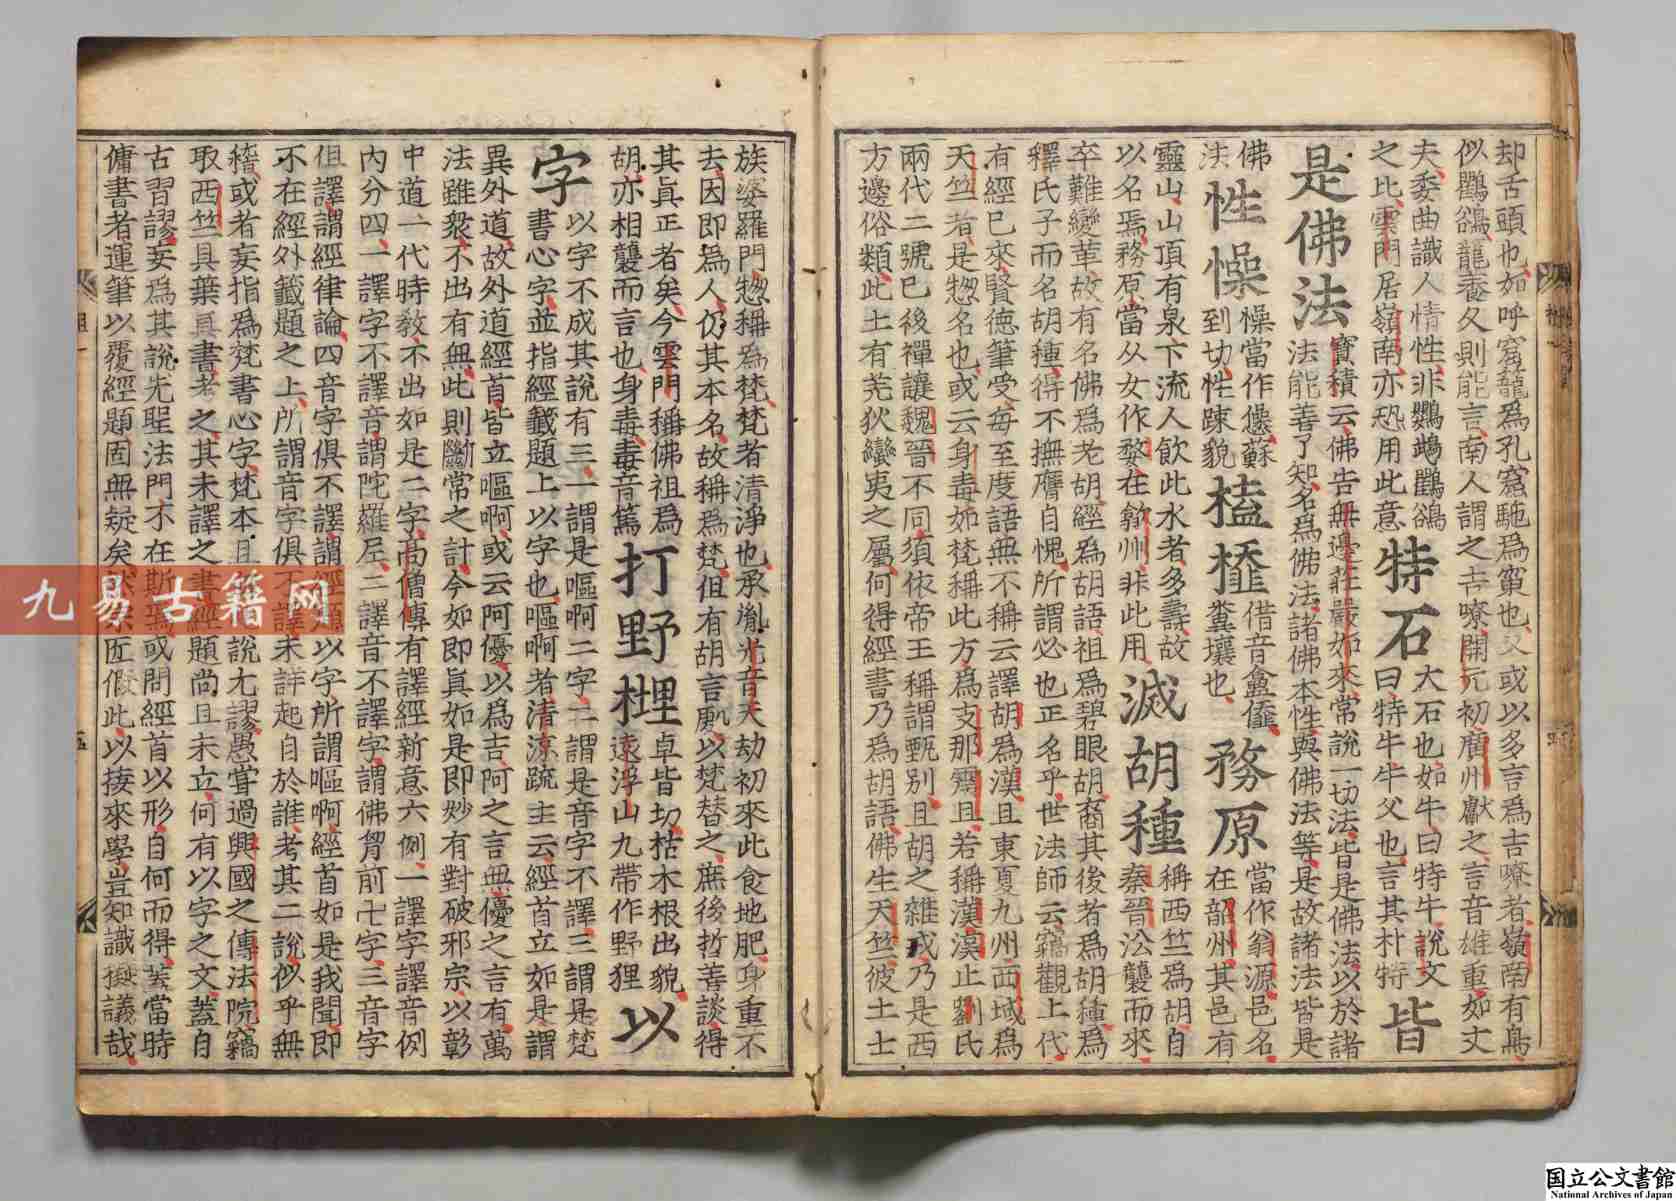 却舌頭也如呼窟籠爲孔窟馳爲窠也又或以多言爲吉嘹者嶺南有鳥
似鸜鵒籠養久則能言南人謂之吉嘹開元初廣州獻之言音雄重如丈
夫委曲識人情性非鸚鵡鸜鵒
之比雲門居嶺南亦恐用此意
特石
大石也如牛曰特牛說文
曰特牛牛父也言其朴特
皆
是佛法
寶積云佛告無邊莊嚴如來常說一切法皆是佛法以於諸
法能善了知名爲佛法諸佛本性與佛法等是故諸法皆是
佛
法
性懆
懆當作㥽蘇
到切性踈貌
榼𣜂
借音
糞壤也
務原
當作翁源邑名
在韶州其邑有
靈山山頂有泉下流人飲此水者多壽故
以名焉務原當从女作婺在
州非此用
滅胡種
稱西竺爲胡自
秦晉㳂襲而來
卒難變革故有名佛爲老胡經爲胡語祖爲碧眼胡裔其後者爲胡種爲
釋氏子而名胡種得不撫膺自愧所謂必也正名乎世法師云竊觀上代
有經已來賢德筆受每至度語無不稱云譯胡爲漢且東夏九州西域爲
天竺者是惣名也或云身毒如梵稱此方爲支那震旦若稱漢漢止劉氏
兩代二號已後禪讓魏晉不同須依帝王稱謂甄别且胡之雜戎乃是西
方邊俗類此土有羌狄蠻夷之屬何得經書乃爲胡語佛生天竺彼土士
族婆羅門惣稱爲梵梵者清淨也承胤光音天劫初來此食地肥身重不
去因即爲人仍其本名故稱爲梵但有胡言處以梵替之庶後哲善談得
其眞正者矣今雲門稱佛祖爲
胡亦相襲而言也身毒毒音篤
打野榸
卓皆切枯木根出貌
遠浮山九帶作野狸
以
字
以字不成其說有三一謂是嘔啊二字二謂是音字不譯三謂是梵
書心字並指經籤題上以字也嘔啊者清涼䟽主云經首立如是謂
異外道故外道經首皆立嘔啊或云阿優以爲吉阿之言無優之言有萬
法雖衆不出有無此則斷常之計今如即眞如是即妙有對破邪宗以彰
中道一代時教不出如是二字高僧傳有譯經新意六例一譯字譯音例
內分四一譯字不譯音謂陀羅尼二譯音不譯字謂佛胷前卍字三音字
俱譯謂經律論四音字俱不譯謂經題以字所謂嘔啊經首如是我聞即
不在經外籤題之上所謂音字俱不譯未詳起自於誰考其二說似乎無
𥡴或者妄指爲梵書心字梵本且說尤謬愚甞過興國之傳法院竊
取西竺具葉眞書考之其未譯之書經題尚且未立何有以字之文蓋自
古習謬妄爲其說先聖法門不在斯焉或問經首以形自何而得荅當時
傭書者運筆以覆經題固無疑矣然宗匠假此以接來學豈知識擬議哉
九易古籍网
国立公文書館
National Archives of Japan